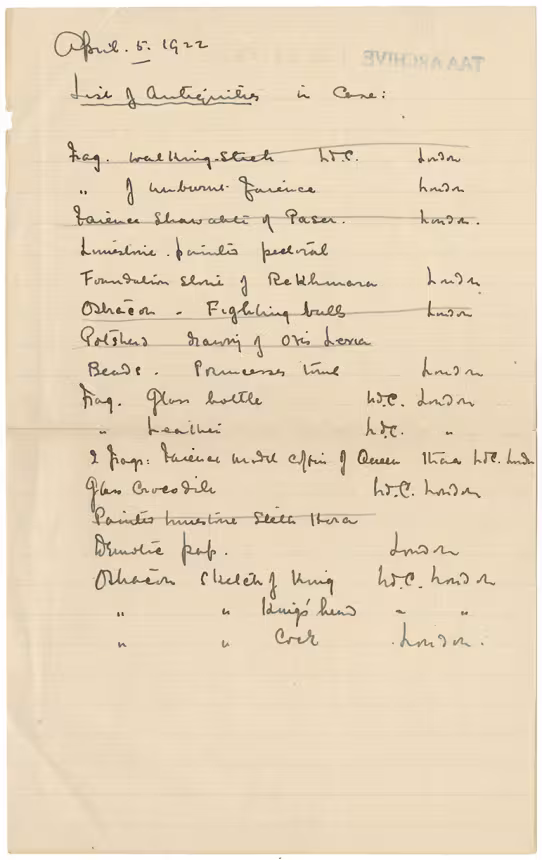 April. 5. 1922
TAA ARCHIVE
List of Antiquities in Case:
Frag. walking-stick W.C. London
" of unburnt faience London
Faience Shawabti of Paser. London.
Limestone. painted pectoral
Foundation stone of Rekhmara London
Ostracon - Fighting bulls London
Potsherd drawing of Ovis
Beads. Princesses tomb London
Frag. Glass bottle W.C. London
" Leather W.C. "
2 frags: faience model coffin of Queen W.C. London
Glass Crocodile W.C. London
Painted limestone Stela
Demotic pap. London
Ostracon Sketch of King W.C. London
" " King's head " "
" " Cock London.